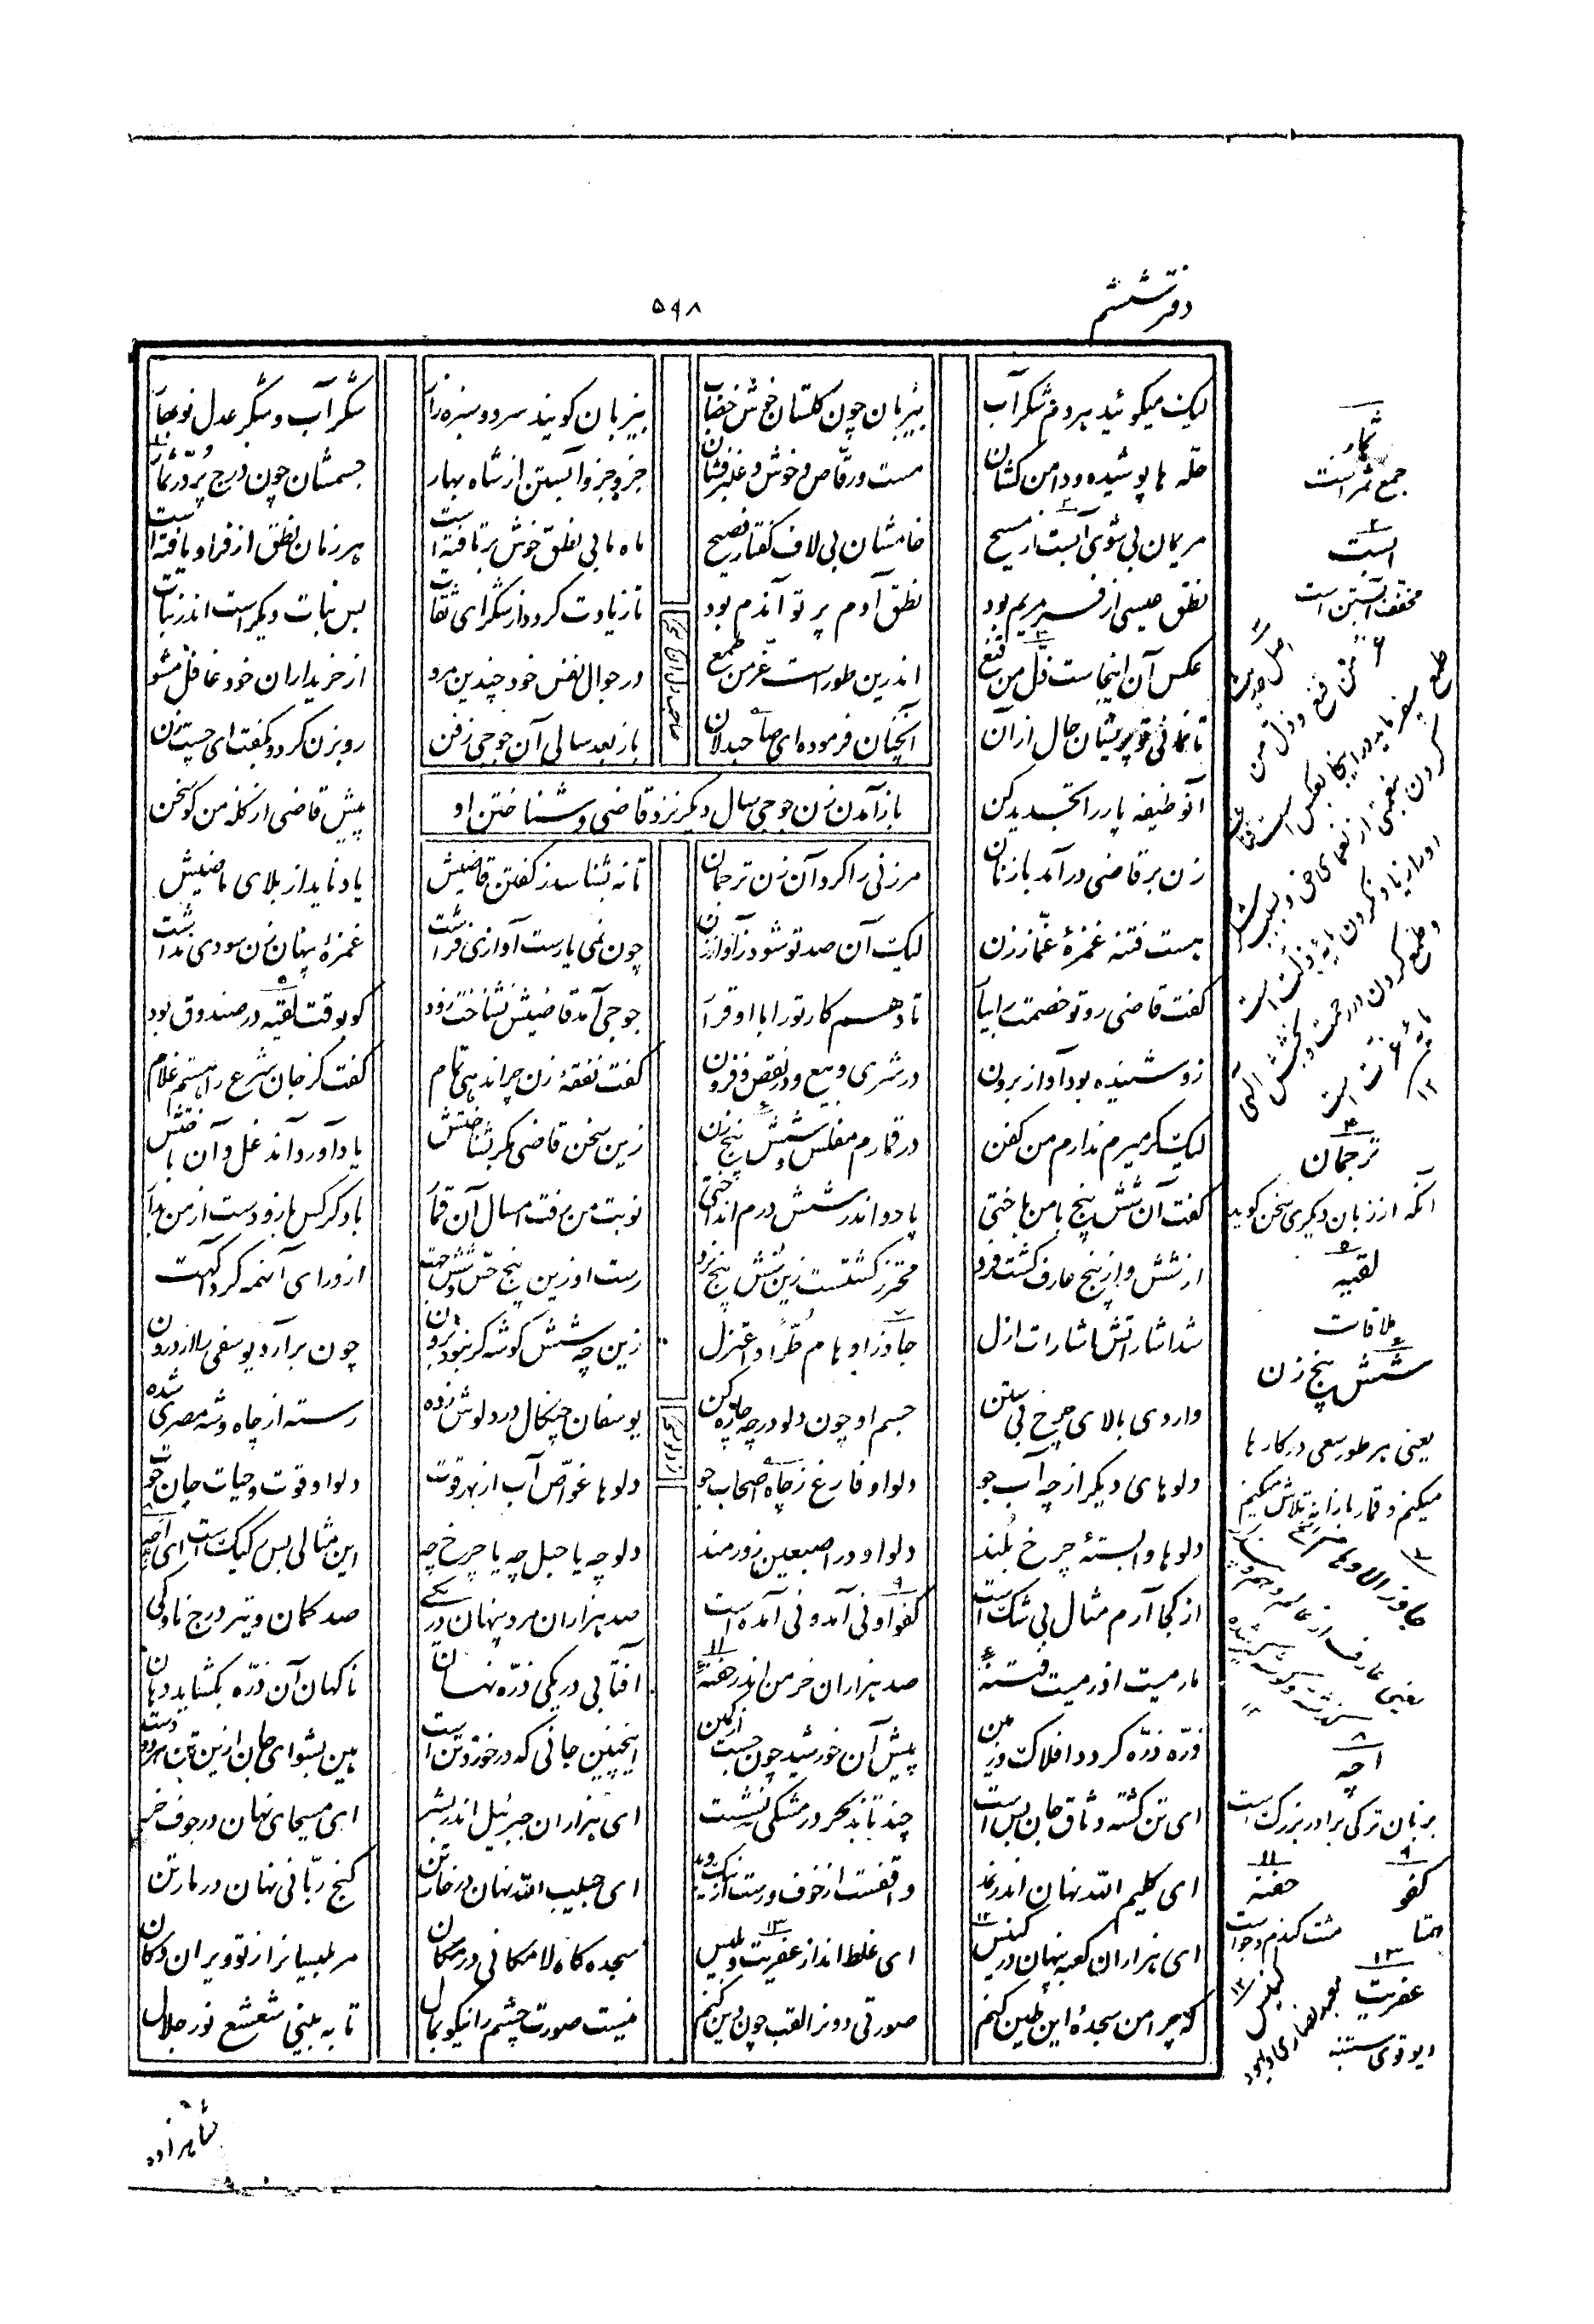 دفتر ششم
۵۹۸
لیک میگوئید هر دم شکر آب بیزبان چون گلستان خوش خضاب
بیزبان گویند سرو و سبزه زار شکر آب و شکر عدل نوبهار
حلّه ها پوشیده و دامن کشان مست و رقّاص و خوش و عنبر فشان
جزو جزو آبستن از شاه بهار جسمشان چون درج پُر درّ ثمار
مریمان بی شوی آبست از مسیح خامشان بی لاف گفتار فصیح
ماه ما بی نطق خوش بر تافته است هر زمان نطق از فر او یافته است
نطق عیسی از فر مریم بود نطق آدم پرتو آن دم بود
تا زیادت گردد از شکر ای ثقات پس نبات دیگر است اندر نبات
عکس آن اینجاست ذلّ من قنع اندرین طور است عزّ من طمع
در جوال نفس خود چندین مرو از خریداران خود غافل مشو
تا نمانی تو پریشان حال ازان آنچنان فرموده ای صاحبدلان
باز بعد سالی آن جوحی ز فن رو بزن کرد و بگفت ای چست زن
آن وظیفه پار را تجدید کن پیش قاضی از گله من گو سخن
باز آمدن زن جوحی سال دیگر نزد قاضی و شناختن او
زن بر قاضی در آمد با زنان مر زنی را کرد آن زن ترجمان
تا نه بشناسد ز گفتن قاضیش یاد ناید از بلای ماضیش
هست فتنه غمزهٔ غمّاز زن لیک آن صد تو شود ز آواز زن
چون نمی یارست آوازی فراشت غمزهٔ پنهان زن سودی نداشت
گفت قاضی رو تو خصمت را بیار تا دهم کار ترا با او قرار
جوحی آمد قاضیش نشناخت زود کو بوقت لقیه در صندوق بود
زو شنیده بود آواز برون در شری و بیع و در نقص و فزون
گفت نفقهٔ زن چرا ندهی تمام گفت کز جان شرع را هستم غلام
لیک گر میرم ندارم من کفن در قمارم مفلس و شش پنج زن
زین سخن قاضی مگر بشناختش یاد آورد آن دغل و آن باختش
گفت آن شش پنج با من باختی پار و اندر شش درم انداختی
نوبت من رفت امسال آن قمار با دگر کس باز و دست از من بدار
از شش و از پنج عارف گشت فرد محترز گشتست زین شش پنج نرد
رست او زین پنج حسّ و شش جهت از ورای آنهمه کرد آگهت
شد اشاراتش اشارات ازل جاوز اوهام طرّا و اعتزل
زین چه شش گوشه گر نبود برون چون برآرد یوسفی را از درون
واردی بالای چرخ بی ستن جسم او چون دلو در چه چاره کن
یوسفان چنگال در دلوش زده رسته از چاه و شه مصری شده
دلوهای دیگر از چه آب جو دلو او فارغ ز چاه اصحاب جو
دلوها غوّاص آب از بهر قوت دلو او قوت و حیات جان حوت
دلوها وابستهٔ چرخ بلند دلو او در اصبعین زورمند
دلو چه یا حبل چه یا چرخ چه این مثالی بس رکیک است ای اچه
از کجا آرم مثال بی شکست کفو او نی آمد و نی آمده است
صد هزاران مرد پنهان در یکی صد کمان و تیر درج ناوکی
ما رمیت اذ رمیت فتنهٔ صد هزاران خرمن اندر حفنهٔ
آفتابی در یکی ذرّه نهان ناگهان آن ذرّه بگشاید دهان
ذرّه ذرّه گردد افلاک و زمین پیش آن خورشید چون جست از کمین
اینچنین جانی که در خورد تن است هین بشو ای جان ازین تن هر دو دست
ای تن گشته وثاق جان بس است چند تاند بحر در مشکی نشست
ای هزاران جبرئیل اندر بشر ای مسیحای نهان در جوف خر
ای کلیم الله نهان اندر نمد
ای حبیب الله نهان در غار تن گنج ربّانی نهان در مار تن
ای هزاران کعبه پنهان در کنیس ای غلط انداز عفریت و بلیس
سجده گاه لامکانی در مکان مر بلیسیانرا ز تو ویران دکان
که چرا من سجدهٔ این طین کنم صورتی دون را لقب چون دین کنم
نیست صورت چشم را نیکو بمال تا به بینی شعشع نور جلال
ثمار
جمع ثمر است
۲
آبست
مخفف آبستن است
۴
ترجمان
آنکه از زبان دیگری سخن گوید
۵
لقیه
ملاقات
۶
شش پنج زن
یعنی بهر طور سعی در کارها
میکنم و قمار بازانه تلاش میکنم
۸
اچه
بزبان ترکی برادر بزرگ است
۹
کفو
همتا
۱۱
حفنه
مشت گندم و جو است
۱۳
عفریت
دیو قوی ستنبه
کنیس
معبد نصاری و یهود
شاهزاده